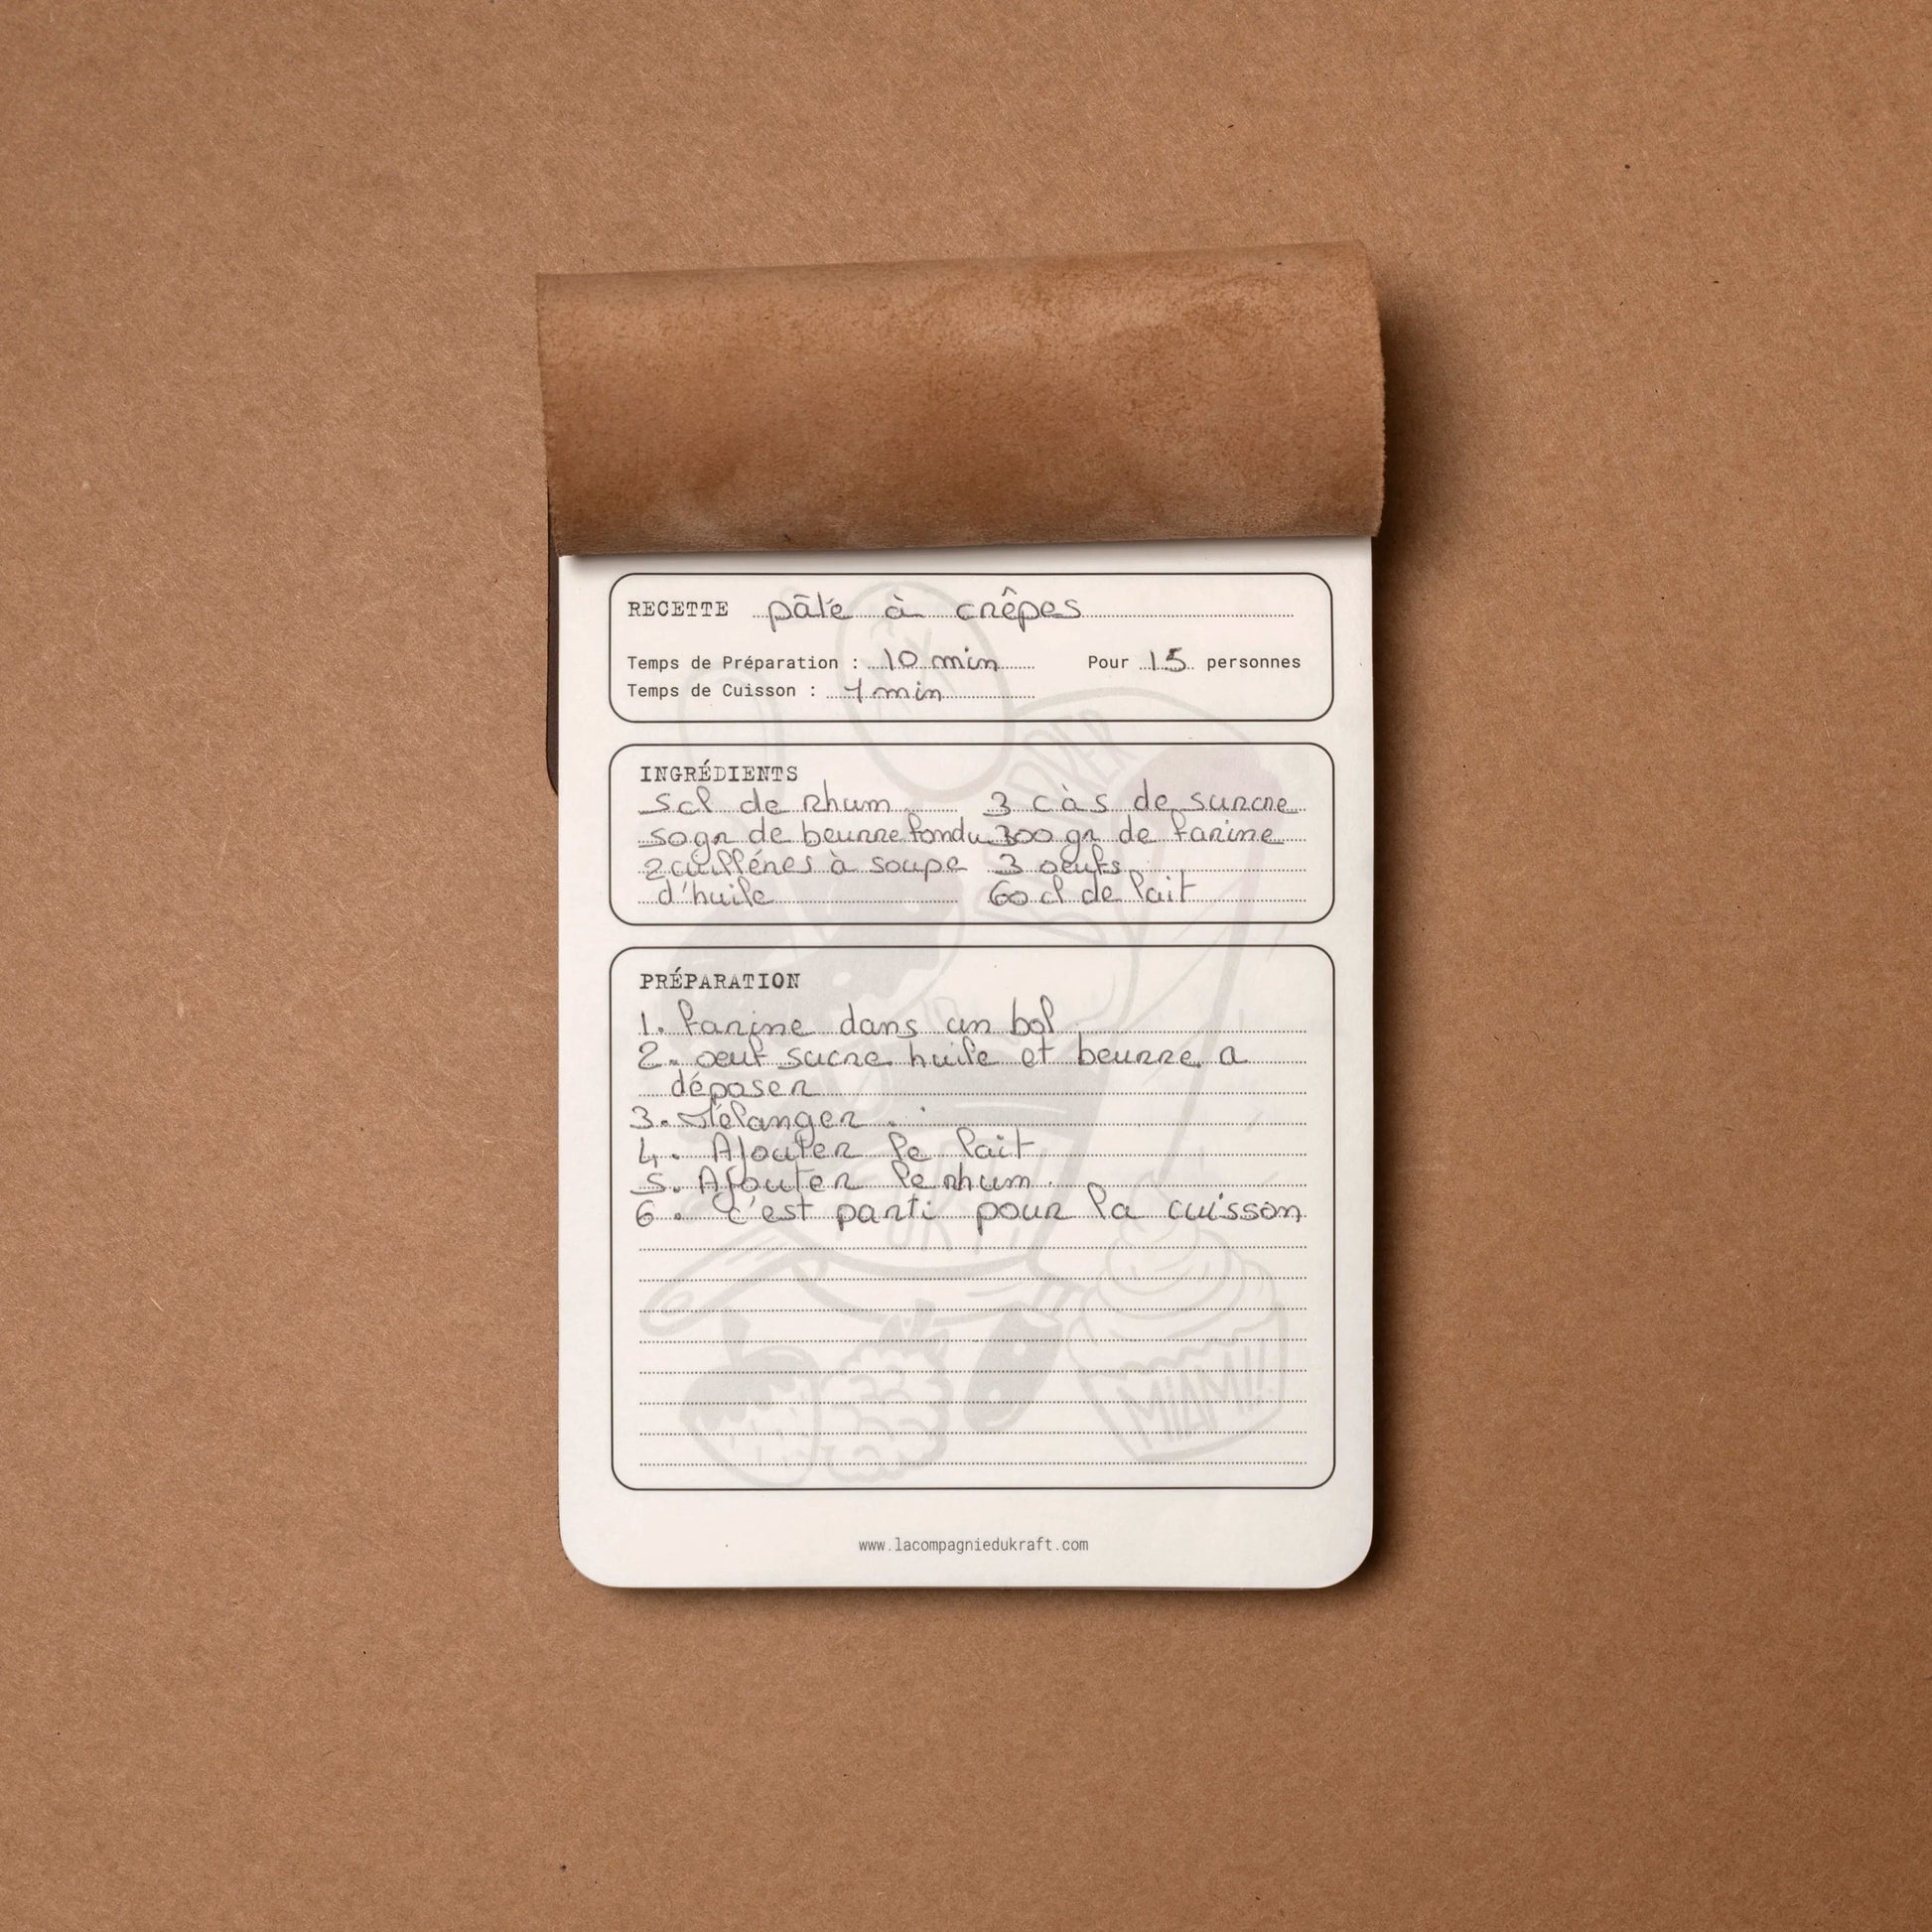 RECETTE pâte à crêpes
Temps de Préparation : 10 min Pour 15 personnes
Temps de Cuisson : 1 min
INGRÉDIENTS
5cl de rhum 3 càs de surcre
50gr de beurre fondu 300 gr de farine
2 cuillères à soupe 3 oeufs
d'huile 60 cl de lait
PRÉPARATION
1. farine dans un bol
2. oeuf sucre huile et beurre a
déposer
3. Mélanger.
4. Ajouter le lait
5. Ajouter le rhum.
6. c'est parti pour la cuisson
MIAM!!
www.lacompagniedukraft.com